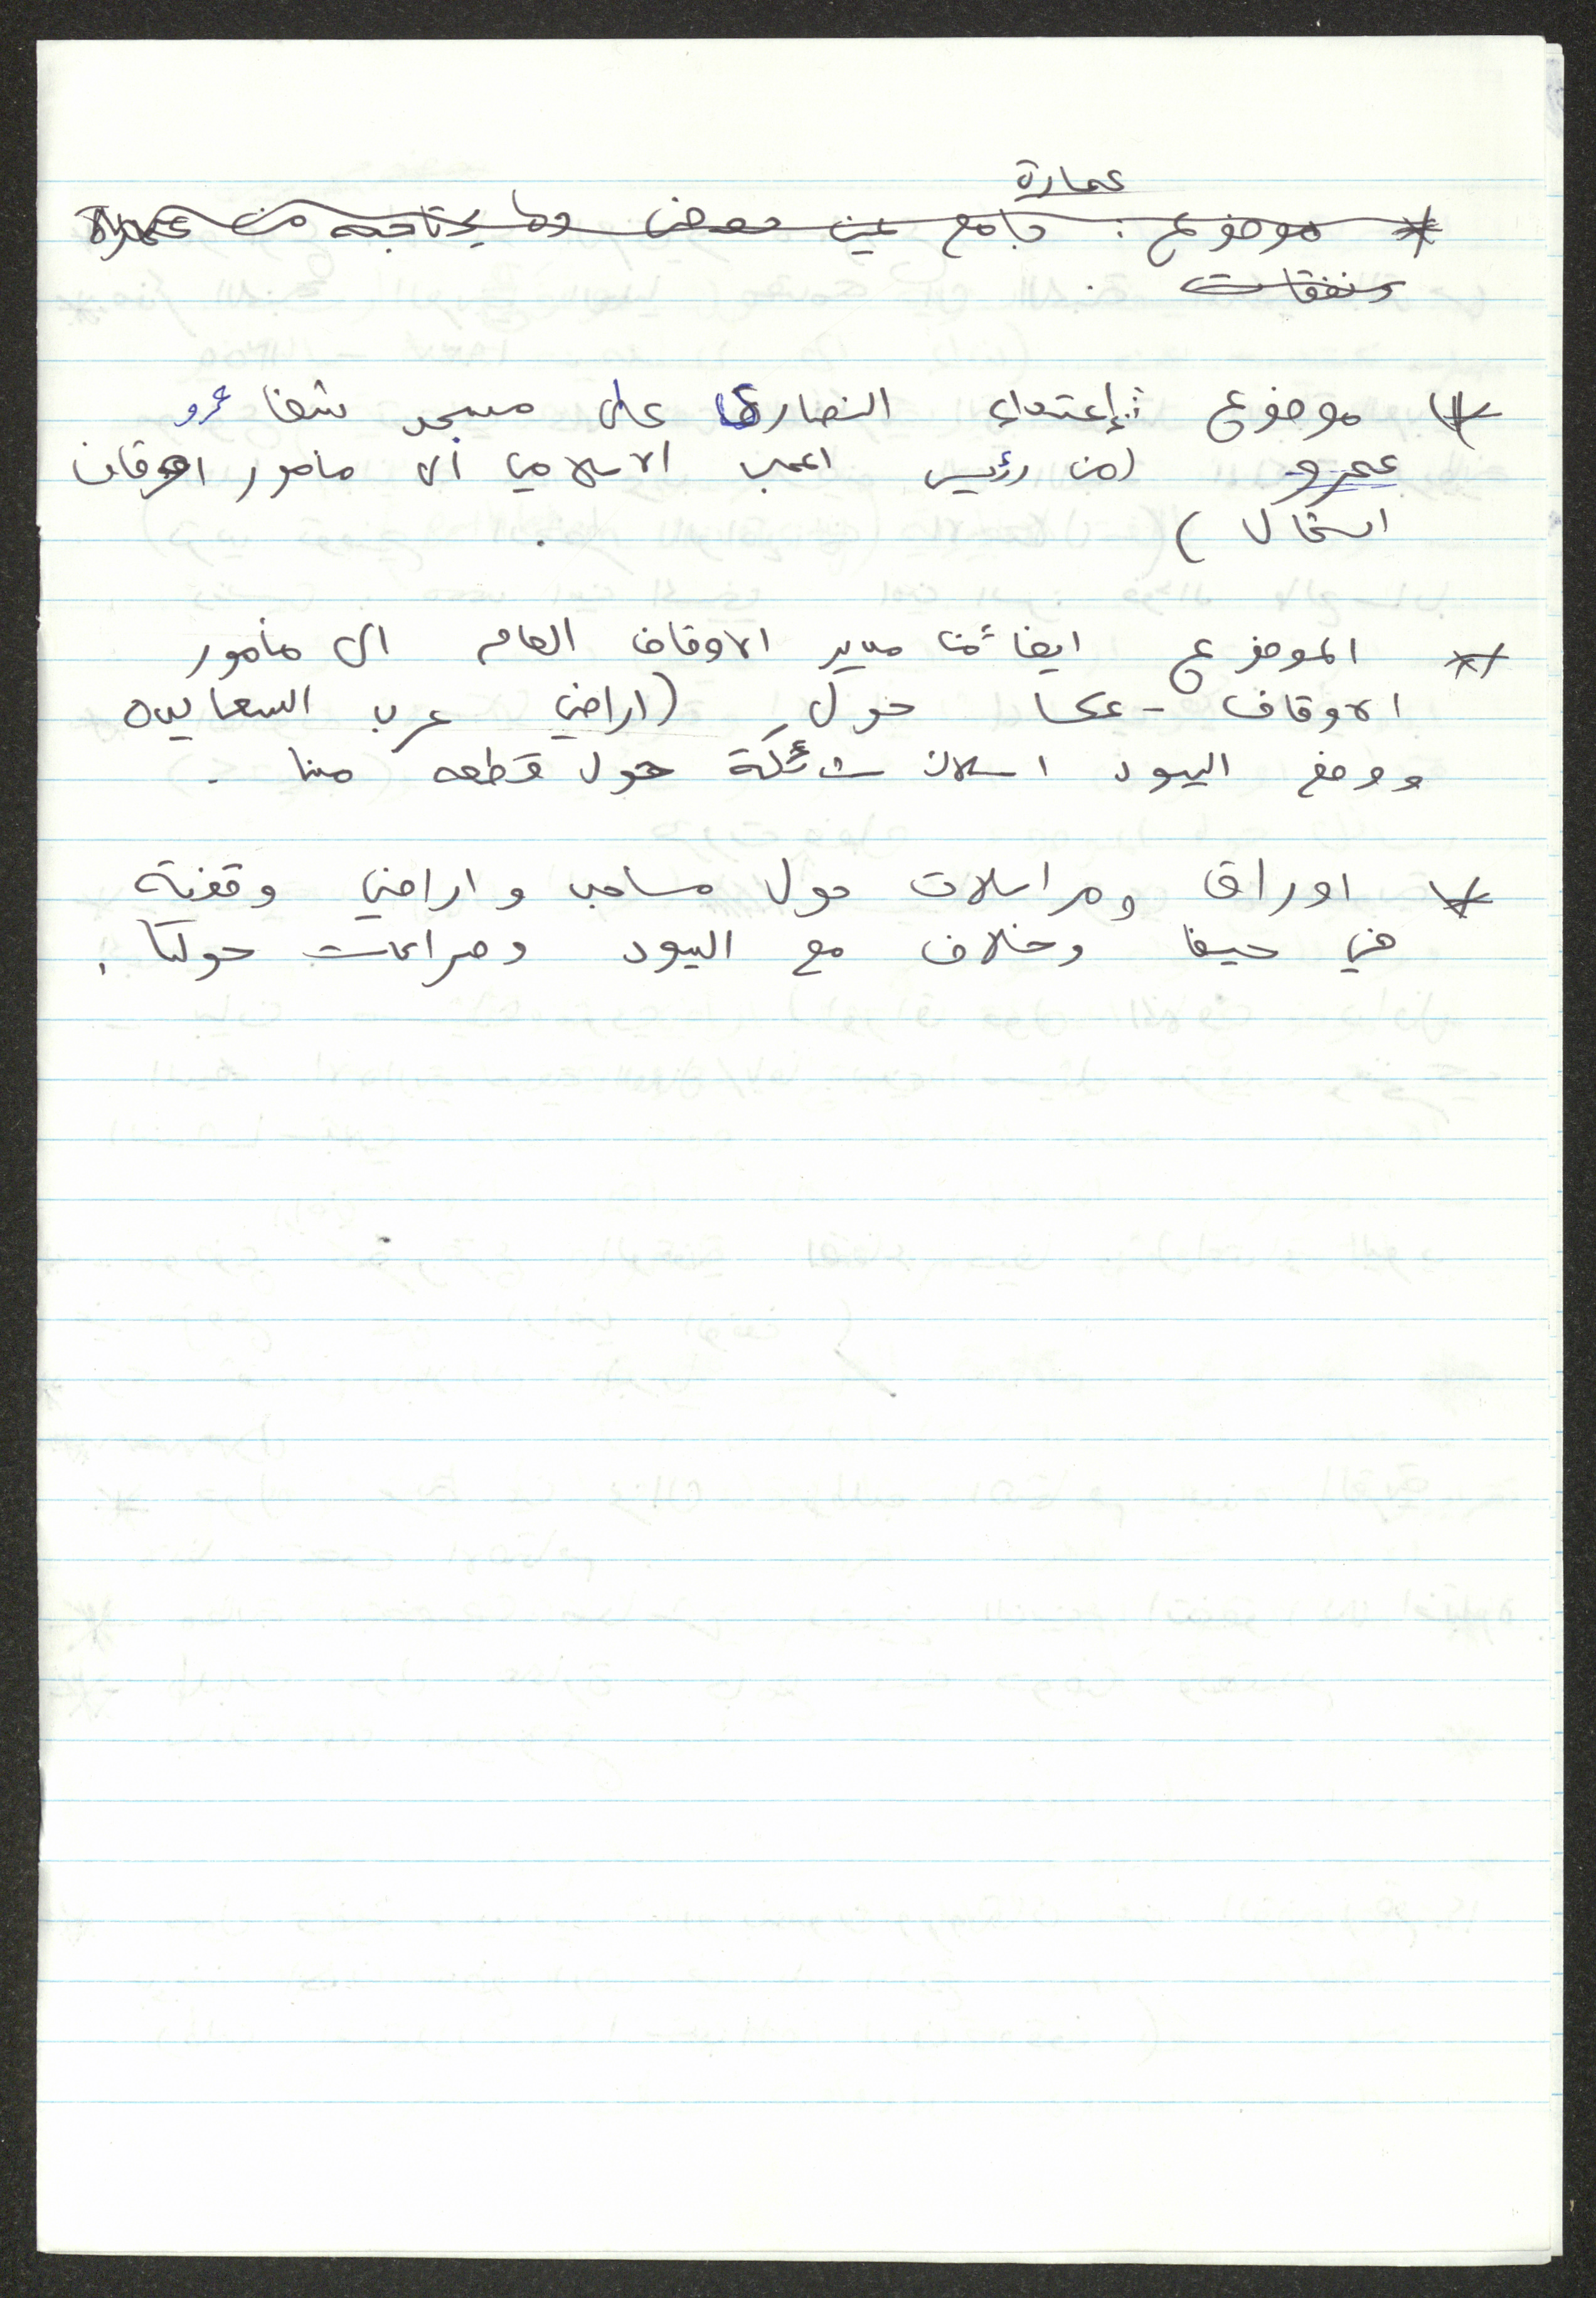 عمارة
* موضوع : جامع عين حوض وما يحتاجه من عمارة
ونفقات .
* موضوع : إعتداء النصارى على مسجد شفا عرو
عمرو (من رئيس المجلس الاسلامي الى مأمور اوقاف
الشمال) .
* الموضوع ايضاً من مدير الاوقاف العام الى مأمور
الاوقاف - عكا حول (اراضي عرب السعايده
ووضع اليهود اسلاك شائكة حول قطعه منها .
* اوراق ومراسلات حول مساجد واراضي وقفية
في حيفا وخلاف مع اليهود وصراعات حولها .